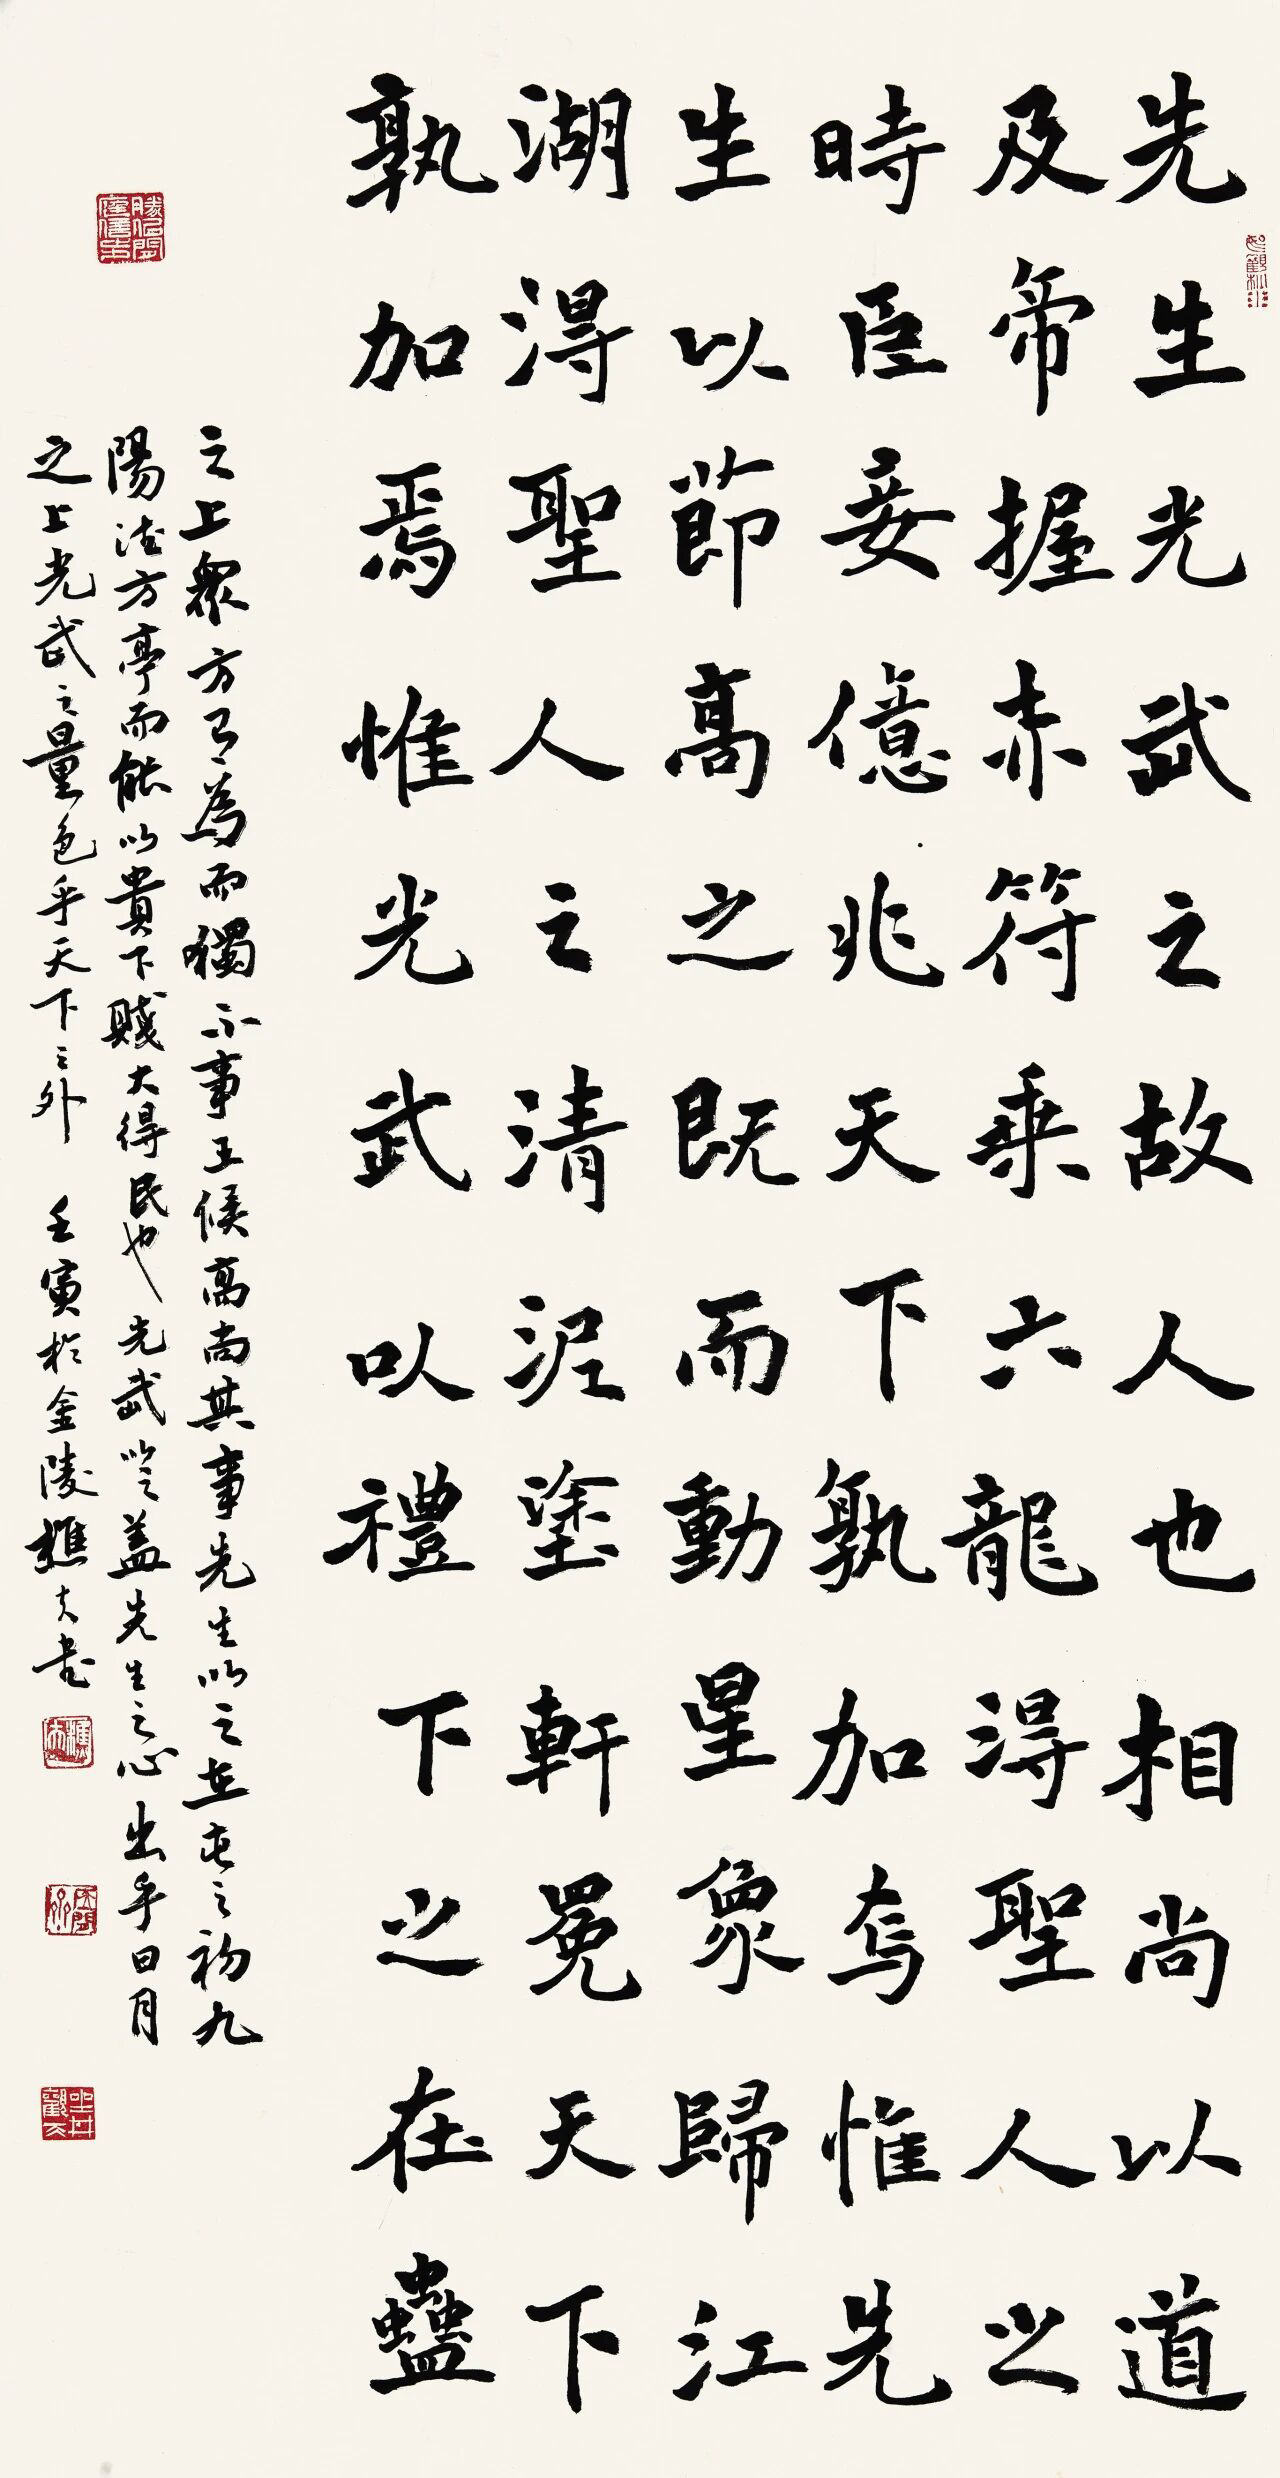 先生光武之故人也相尚以道
及帝握赤符乘六龍得聖人之
時臣妾億兆天下孰加焉惟先
生以節高之既而動星象歸江
湖得聖人之清泥塗軒冕天下
孰加焉惟光武以禮下之在蠱
之上衆方有為而獨不事王侯高尚其事先生以之在屯之初九
陽德方亨而能以貴下賤大得民也光武以之蓋先生之心出乎日月
之上光武之量包乎天下之外 壬寅於金陵樵夫書